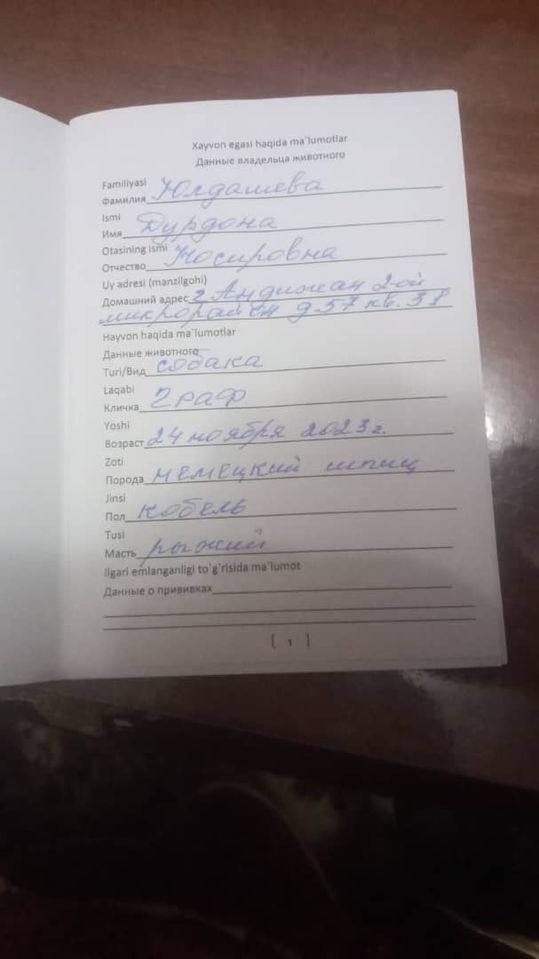 Xayvon egasi haqida ma`lumotlar
Данные владельца животного
Familiyasi
Фамилия Юлдашева
Ismi
Имя Дурдона
Otasining ismi
Отчество Носировна
Uy adresi (manzilgohi)
Домашний адрес г Андижан 2-ой
микрорайон д 57 кв. 38
Hayvon haqida ma`lumotlar
Данные животного
Turi/Вид собака
Laqabi
Кличка Граф
Yoshi
Возраст 24 ноября 2023 г.
Zoti
Порода немецкий шпиц
Jinsi
Пол кобель
Tusi
Масть рыжий
Ilgari emlanganligi to`g`risida ma`lumot
Данные о прививках
[ 1 ]